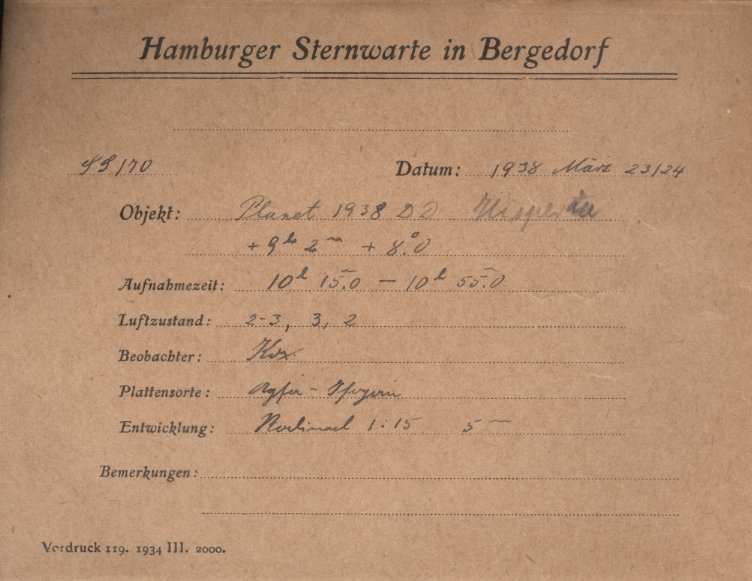 Hamburger Sternwarte in Bergedorf
Datum: 1938 März 23/24
Objekt: Planet 1938 DD
+ 9h 2m + 8°.0
Aufnahmezeit: 10h 15m.0 — 10h 55m.0
Luftzustand: 2-3, 3, 2
Beobachter:
Plattensorte: Agfa -
Entwicklung: Rodinal 1:15 5m
Bemerkungen:
Vordruck 119. 1934 III. 2000.